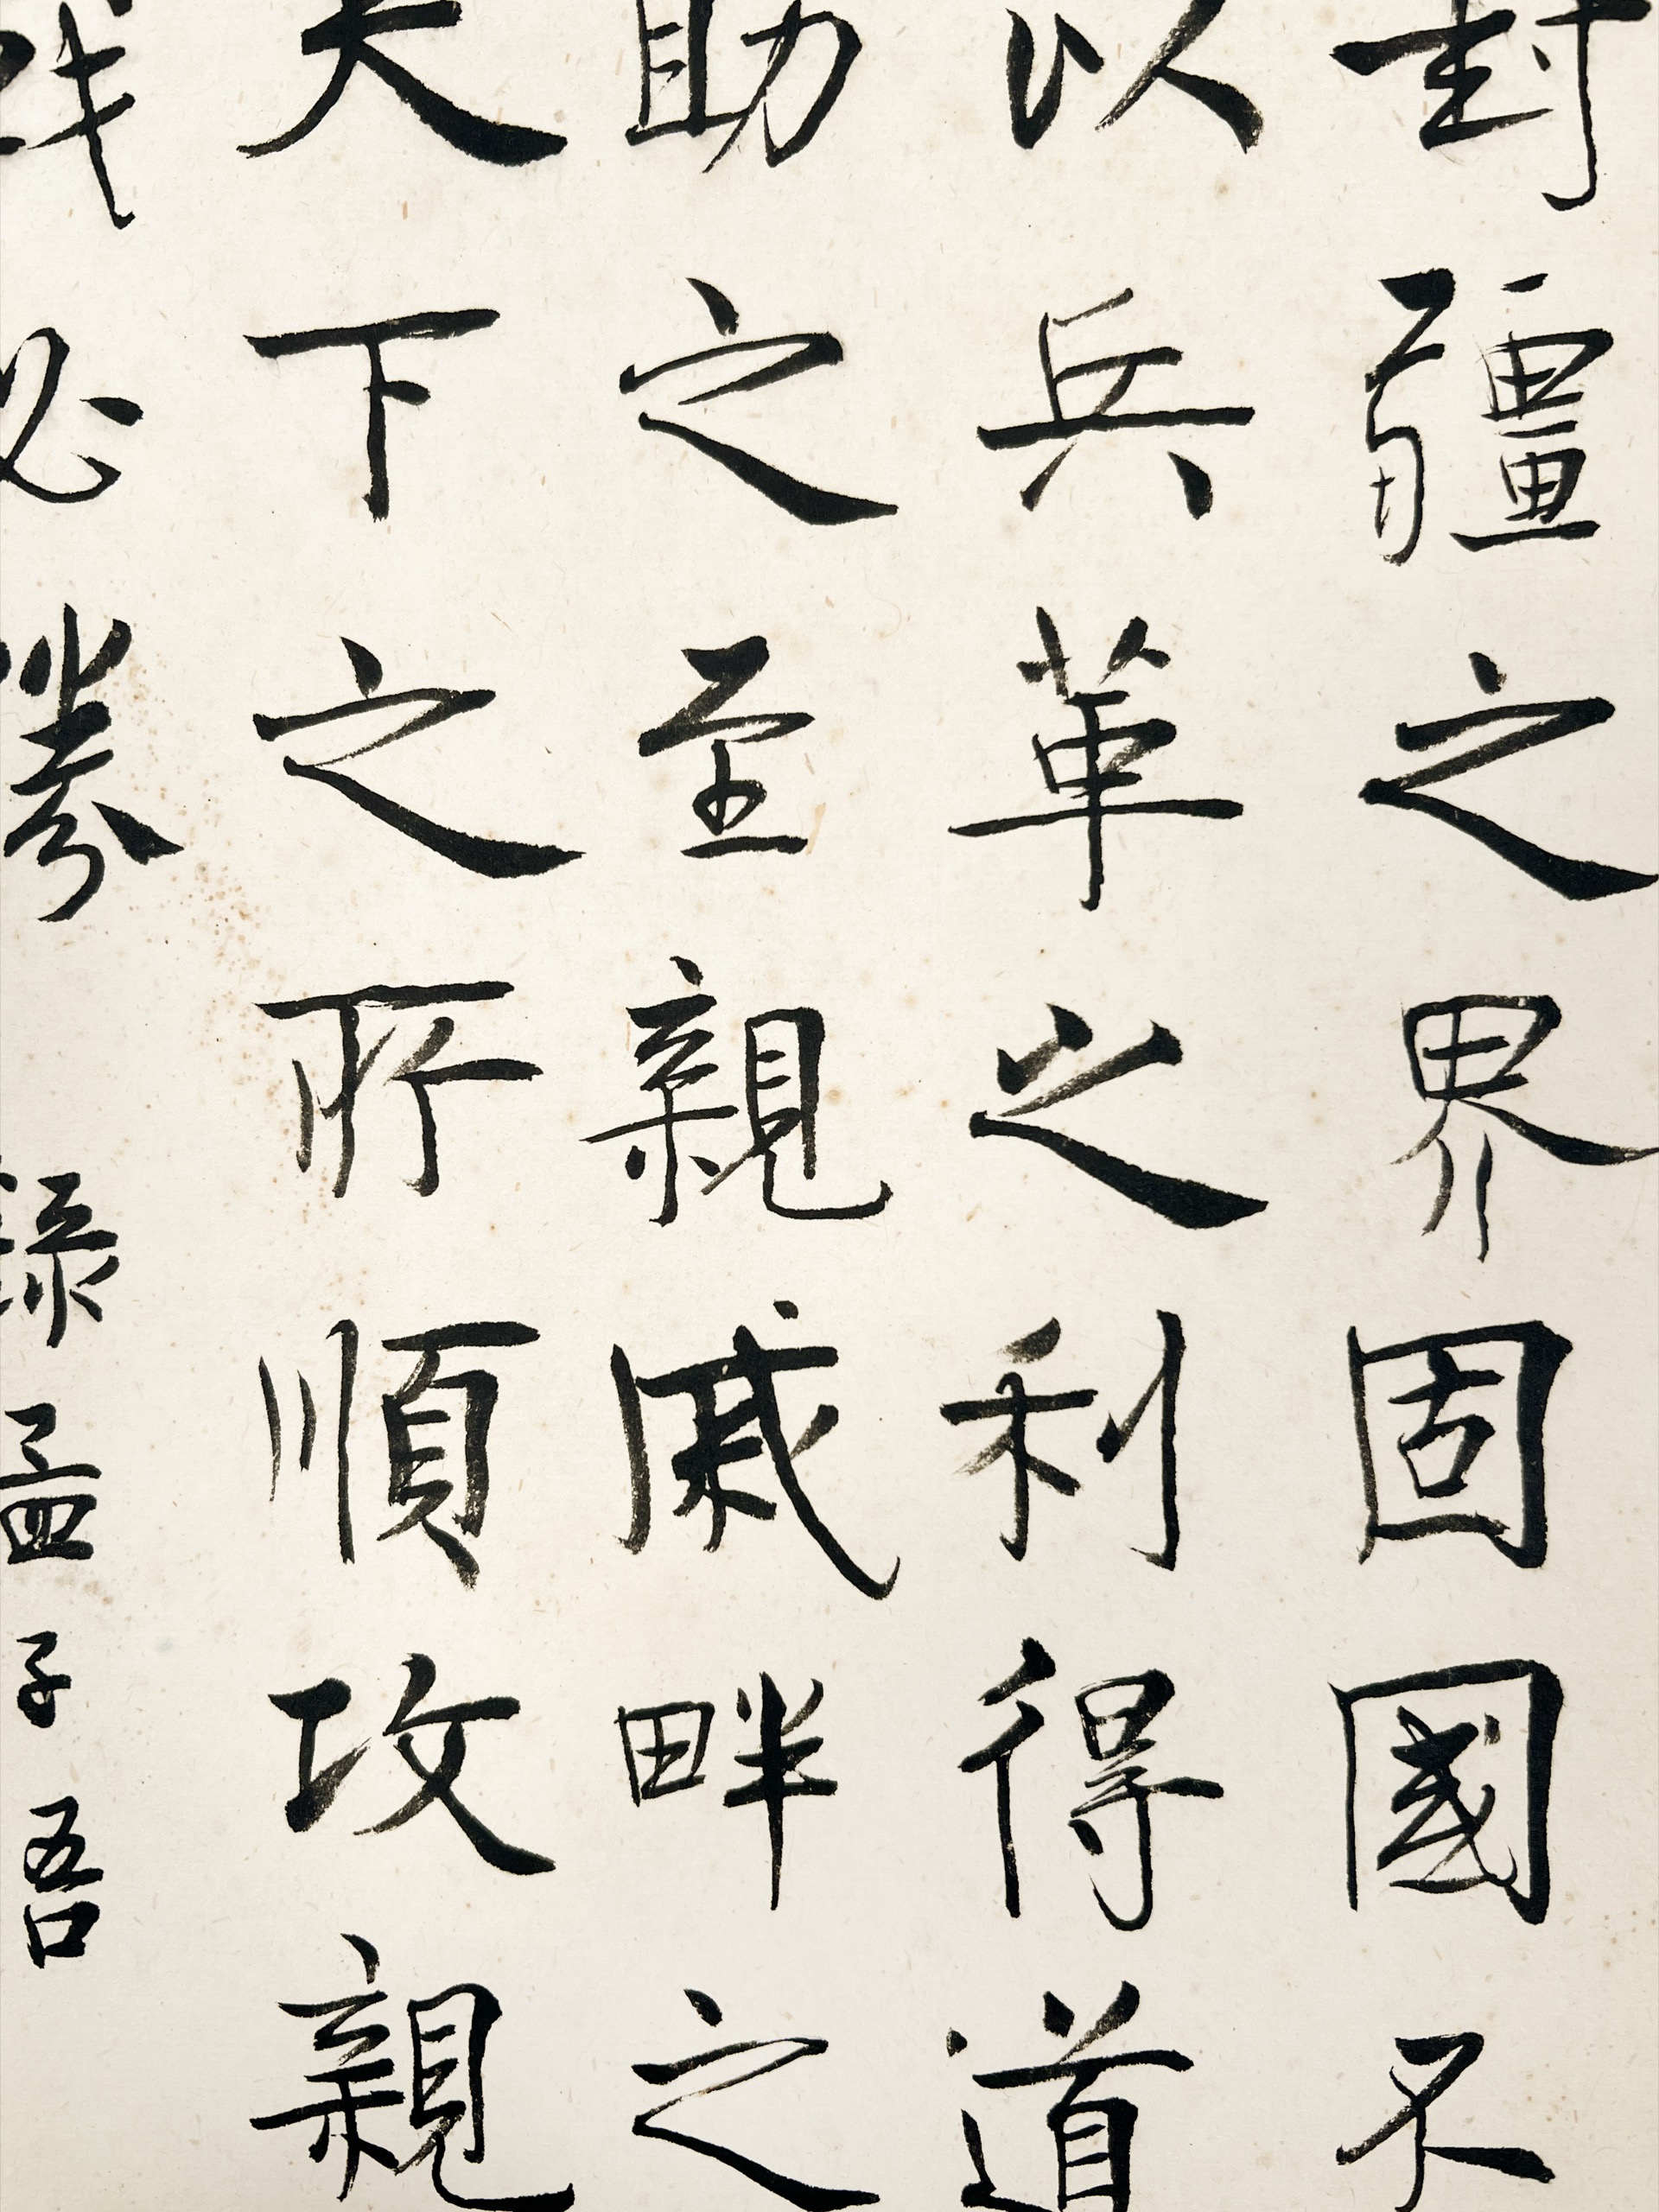 封疆之界固國不
以兵革之利得道
助之至親戚畔之
天下之所順攻親
戰必勝 錄孟子吾